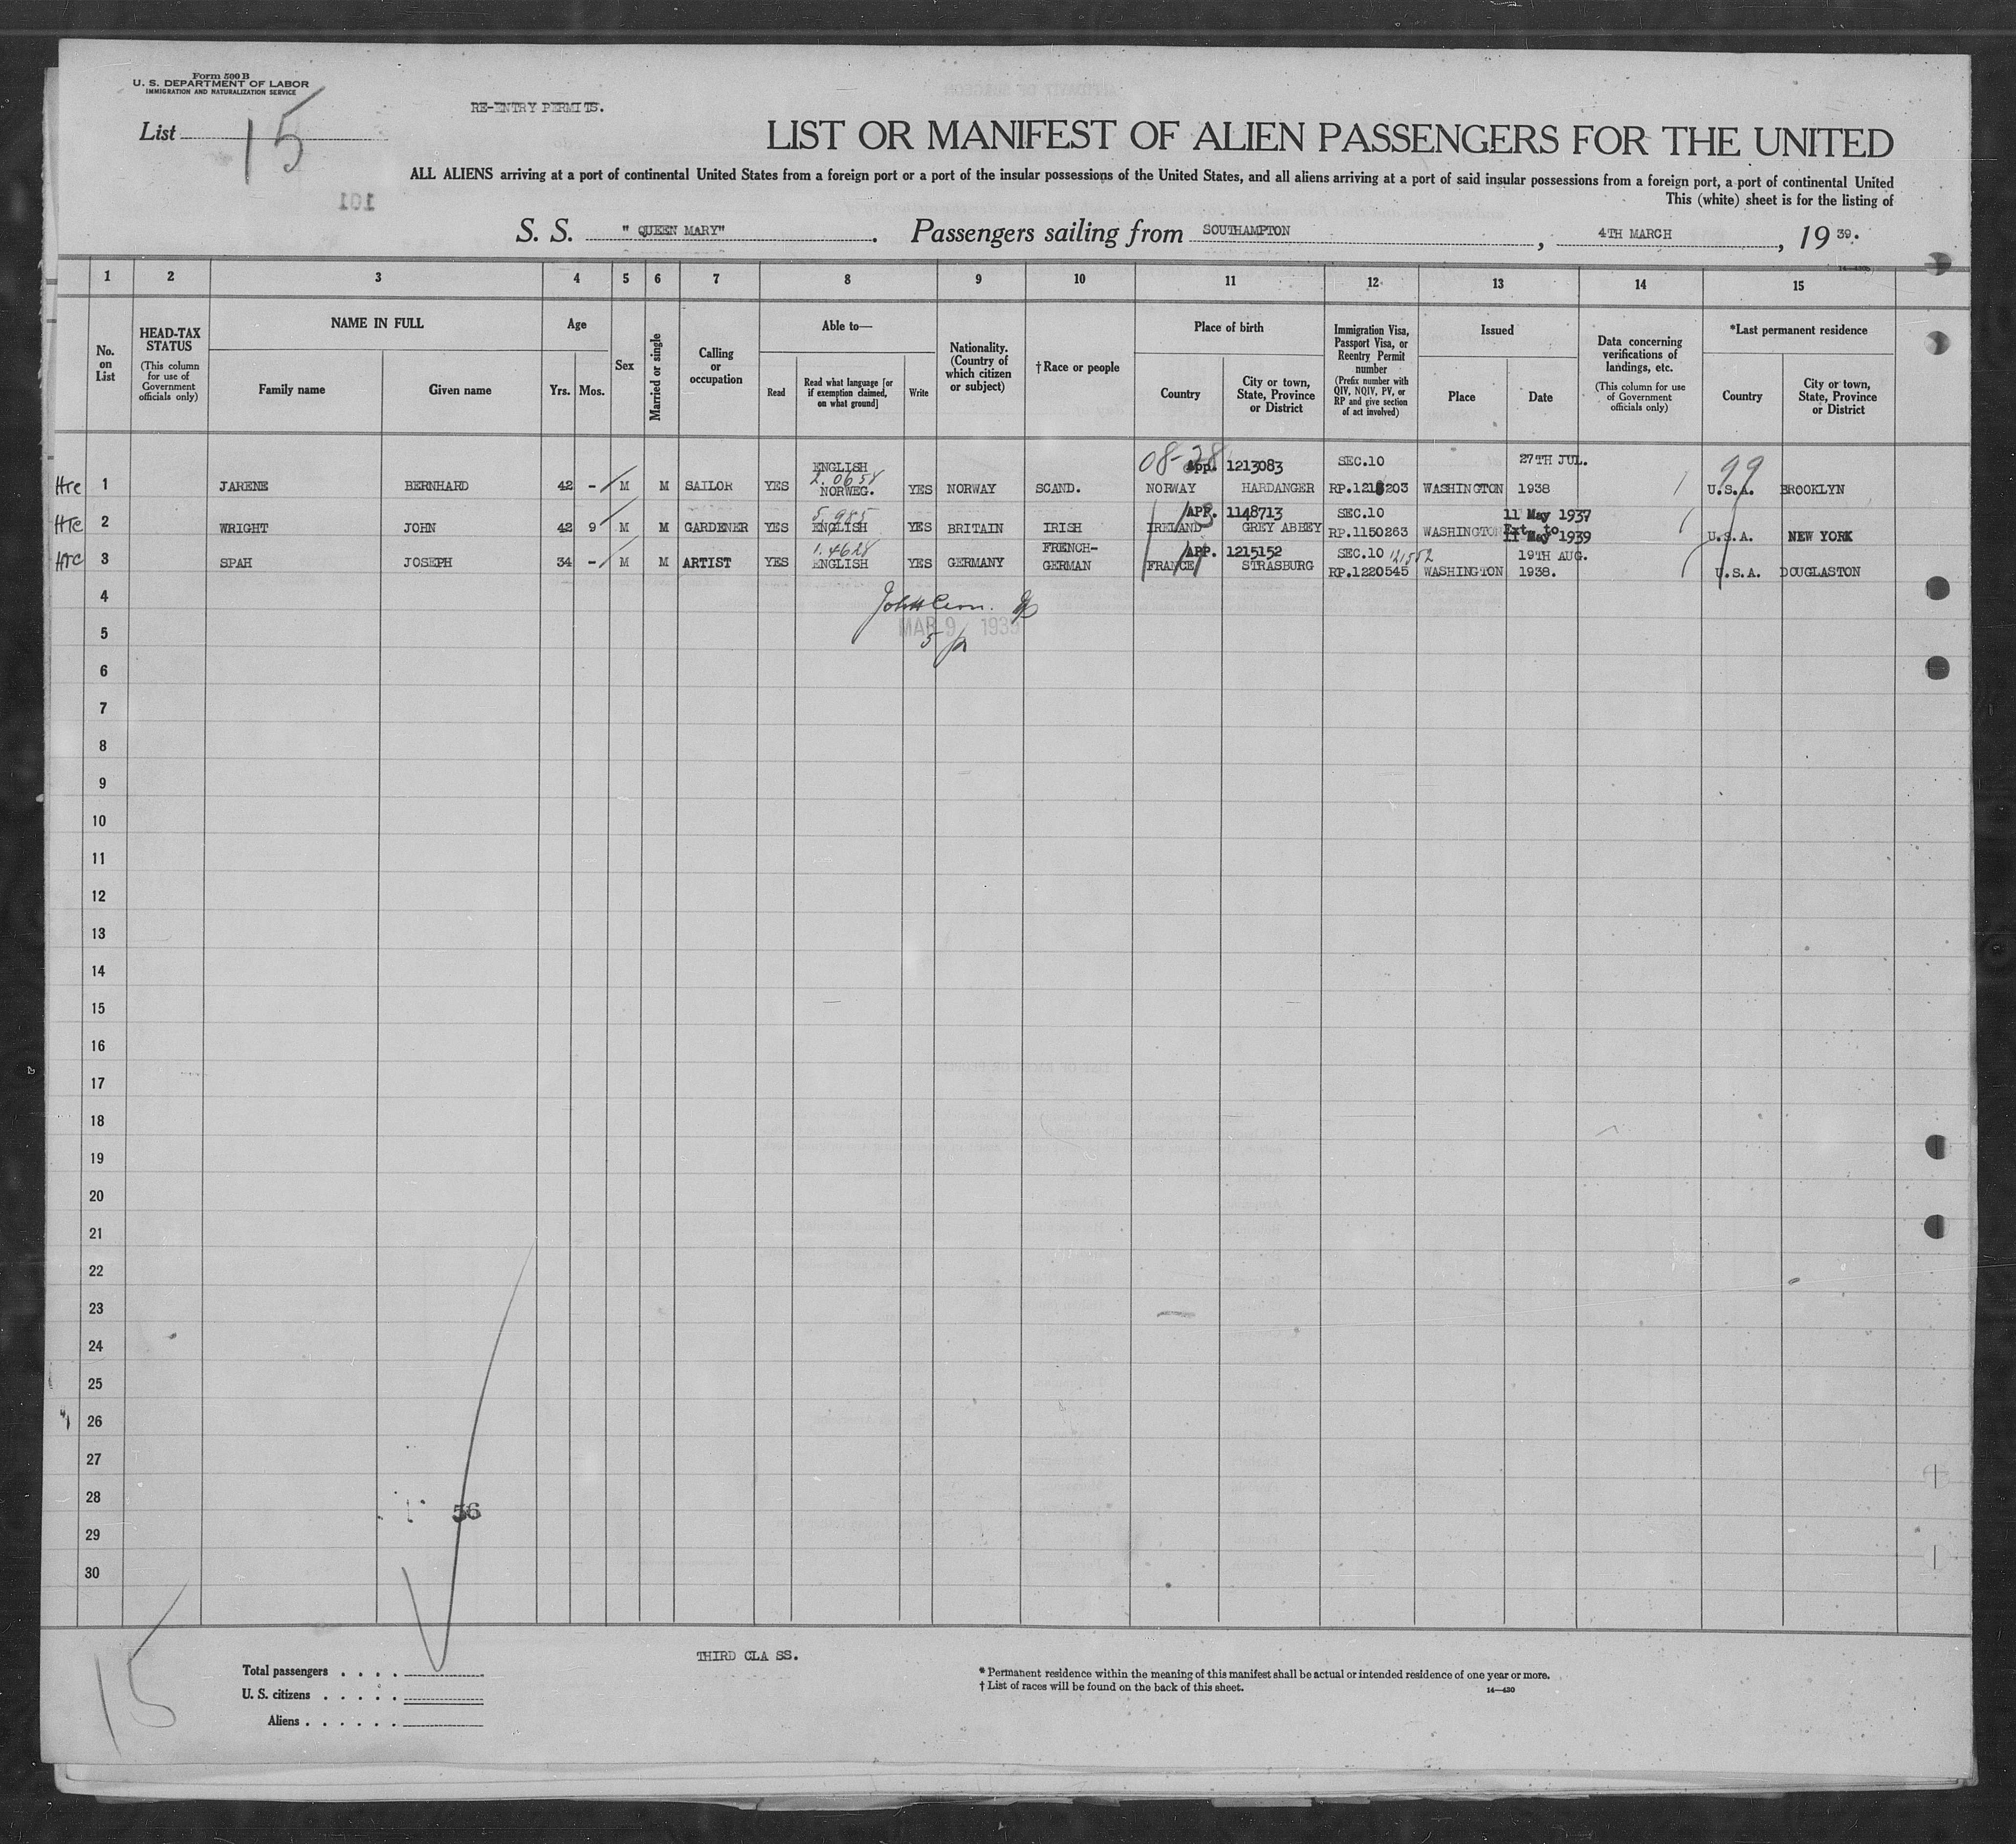 Form 500 B
U. S. DEPARTMENT OF LABOR
IMMIGRATION AND NATURALIZATION SERVICE
RE-ENTRY PERMITS.
List 15
LIST OR MANIFEST OF ALIEN PASSENGERS FOR THE UNITED
ALL ALIENS arriving at a port of continental United States from a foreign port or a port of the insular possessions of the United States, and all aliens arriving at a port of said insular possessions from a foreign port, a port of continental United
This (white) sheet is for the listing of
101
S. S. " QUEEN MARY". Passengers sailing from SOUTHAMPTON, 4TH MARCH, 19 39.
1 2 3 4 5 6 7 8 9 10 11 12 13 14 15
No. on List
HEAD-TAX STATUS
(This column for use of Government officials only)
NAME IN FULL
Family name Given name
Age
Yrs. Mos.
Sex
Married or single
Calling or occupation
Able to—
Read
Read what language [or if exemption claimed, on what ground]
Write
Nationality. (Country of which citizen or subject)
†Race or people
Place of birth
Country
City or town, State, Province or District
Immigration Visa, Passport Visa, or Reentry Permit number
(Prefix number with QIV, NQIV, PV, or RP and give section of act involved)
Issued
Place Date
Data concerning verifications of landings, etc.
(This column for use of Government officials only)
*Last permanent residence
Country
City or town, State, Province or District
ENGLISH 08-28 App. 1213083 SEC.10 27TH JUL. 99
1 JARENE BERNHARD 42 - M M SAILOR YES NORWEG. YES NORWAY SCAND. NORWAY HARDANGER WASHINGTON 1938 U.S.A. BROOKLYN
5.985 APP. 1148713 SEC.10 11 May 1937
2 WRIGHT JOHN 42 9 M M GARDENER YES ENGLISH YES BRITAIN IRISH IRELAND GREY ABBEY RP.1150263 WASHINGTON Ext to 11 May 1939 U.S.A. NEW YORK
1.4628 FRENCH- APP. 1215152 SEC.10 19TH AUG.
3 SPAH JOSEPH 34 - M M ARTIST YES ENGLISH YES GERMANY GERMAN FRANCE STRASBURG RP.1220545 WASHINGTON 1938. U.S.A. DOUGLASTON
4
MAR 9 1939
5
6
7
8
9
10
11
12
13
14
15
16
17
18
19
20
21
22
23
24
25
26
27
28
56
29
30
15
THIRD CLA SS.
Total passengers
U. S. citizens
Aliens
* Permanent residence within the meaning of this manifest shall be actual or intended residence of one year or more.
† List of races will be found on the back of this sheet.
14—430